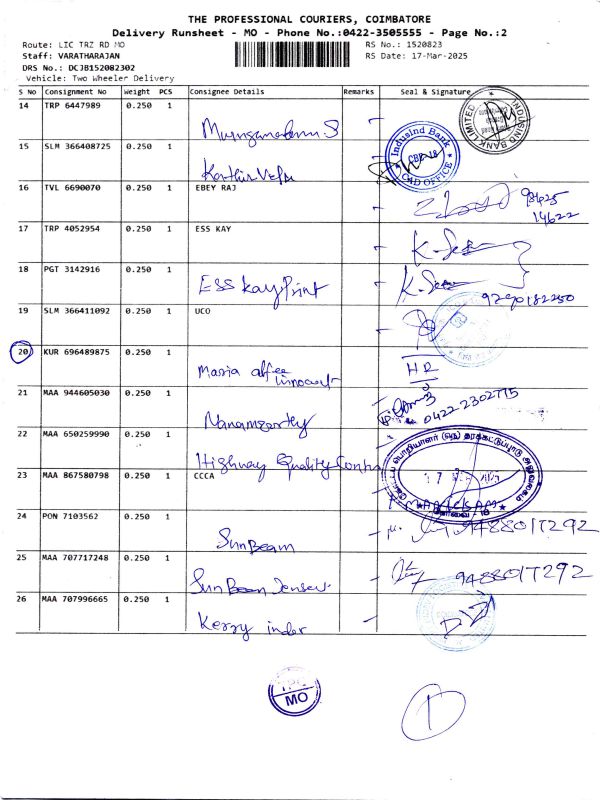 THE PROFESSIONAL COURIERS, COIMBATORE
Delivery Runsheet - MO - Phone No.:0422-3505555 - Page No.:2
Route: LIC TRZ RD MO
RS No.: 1520823
Staff: VARATHARAJAN
RS Date: 17-Mar-2025
DRS No.: DCJB152082302
Vehicle: Two Wheeler Delivery
S No Consignment No Weight PCS Consignee Details Remarks Seal & Signature
14 TRP 6447989 0.250 1
INDUSIND BANK LIMITED
15 SLM 366408725 0.250 1
IndusInd Bank
CAD OFFICE
16 TVL 6690070 0.250 1 EBEY RAJ
98425
14622
17 TRP 4052954 0.250 1 ESS KAY
18 PGT 3142916 0.250 1
ESS Kay Print
9290182250
19 SLM 366411092 0.250 1 UCO
20 KUR 696489875 0.250 1
Maria
HR
21 MAA 944605030 0.250 1
0422-2302775
22 MAA 650259990 0.250 1
Highway Quality Contn
23 MAA 867580798 0.250 1 CCCA
17
24 PON 7103562 0.250 1
SunBeam
9488017292
25 MAA 707717248 0.250 1
Sun Beam
9488017292
26 MAA 707996665 0.250 1
Kerry inder
TPC
MO
1